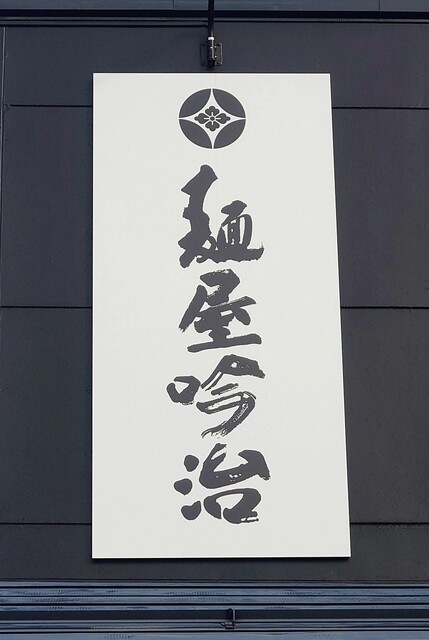 麺屋吟治